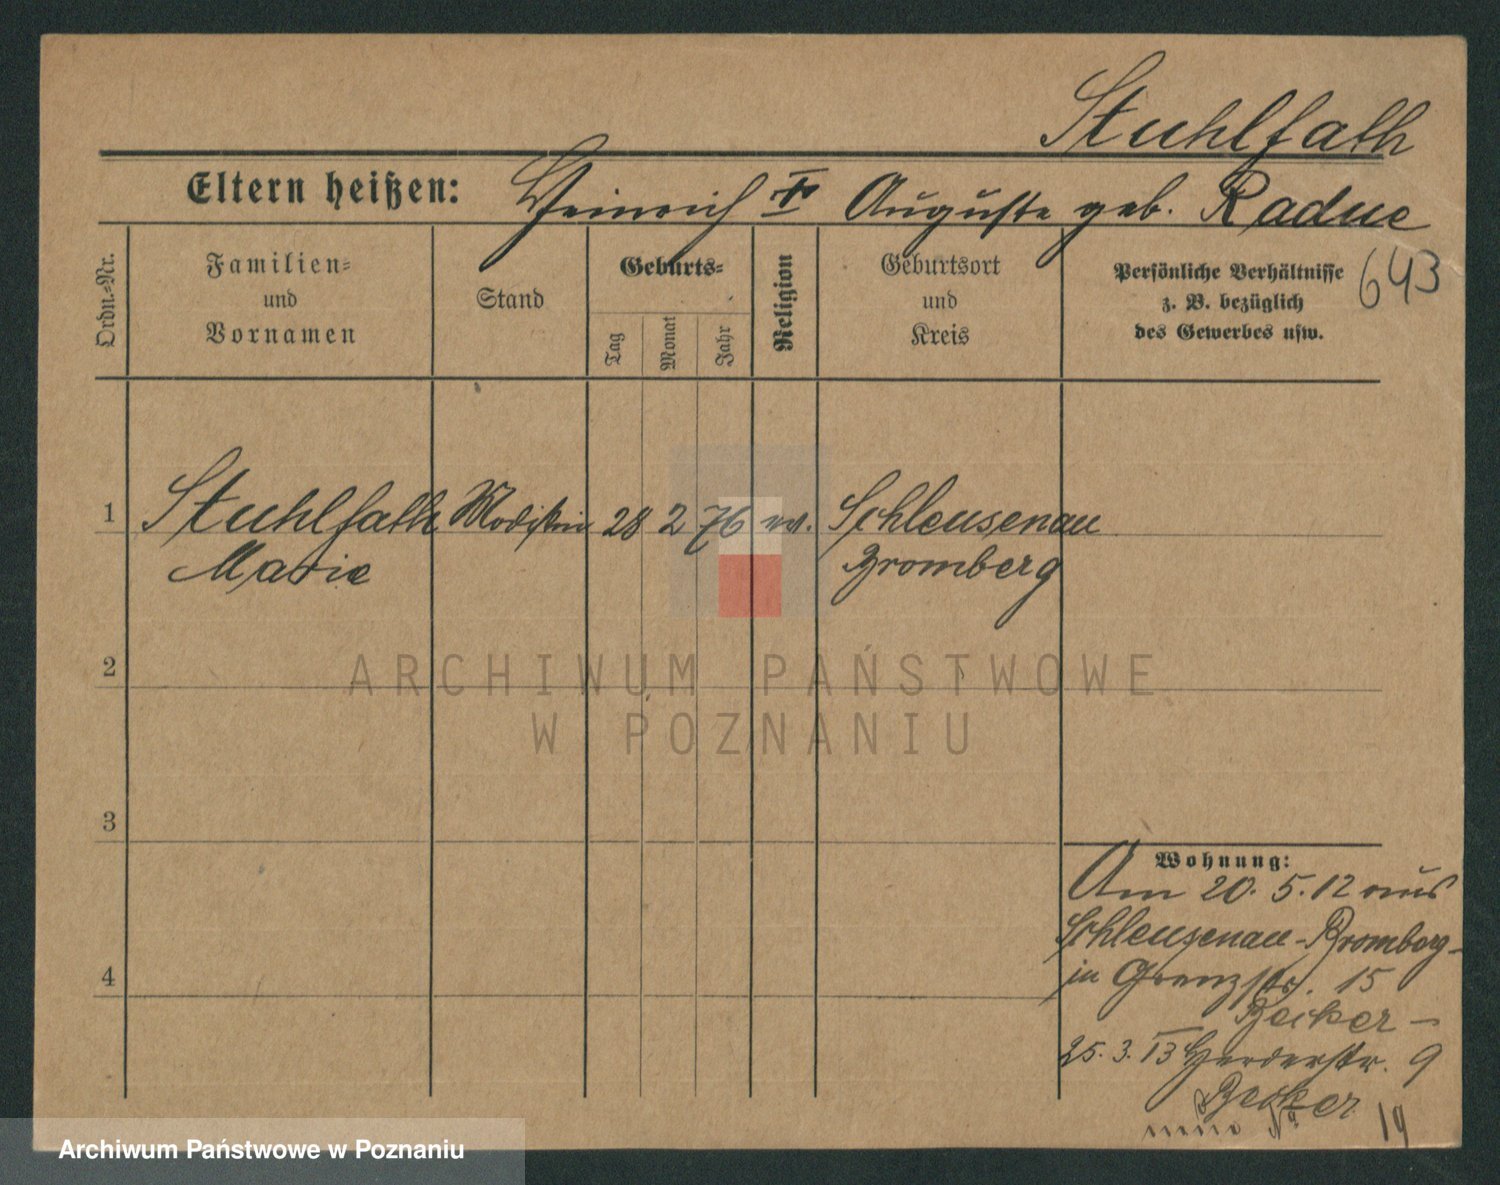 Stuhlfath
Eltern heißen: Heinrich † Auguste geb. Radue
643
Ordn.-Nr.
Familien-
und
Vornamen
Stand
Geburts-
Tag
Monat
Jahr
Religion
Geburtsort
und
Kreis
Persönliche Verhältnisse
z. B. bezüglich
des Gewerbes usw.
1 Stuhlfath Modistin 28 2 76 ev. Schleusenau
Marie Bromberg
2
3
4
Wohnung:
Am 20. 5. 12 aus
Schleusenau-Bromberg-
in Grenzstr. 15
Becker-
25. 3. 13 Herderstr. 9
Becker
neue No 19
ARCHIWUM PAŃSTWOWE
W POZNANIU
Archiwum Państwowe w Poznaniu